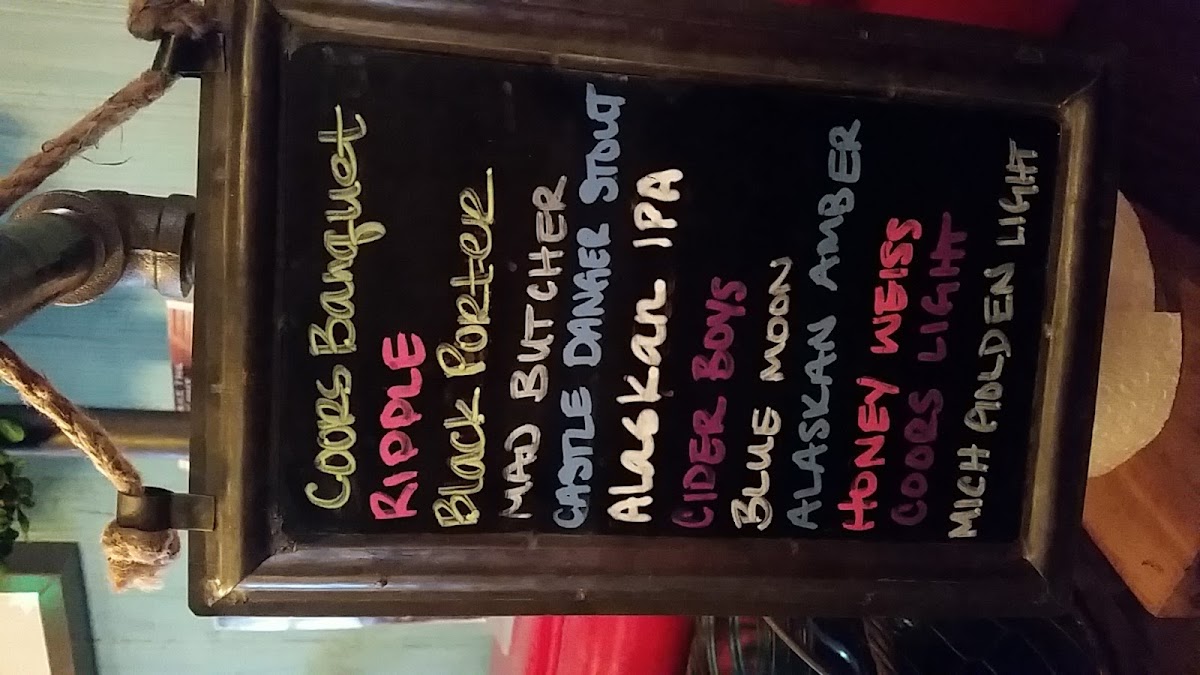 Coors Banquet
RIPPLE
Black Porter
MAD BUTCHER
CASTLE DANGER STOUT
Alaskan IPA
CIDER BOYS
BLUE MOON
ALASKAN AMBER
HONEY WEISS
COORS LIGHT
MICH GOLDEN LIGHT